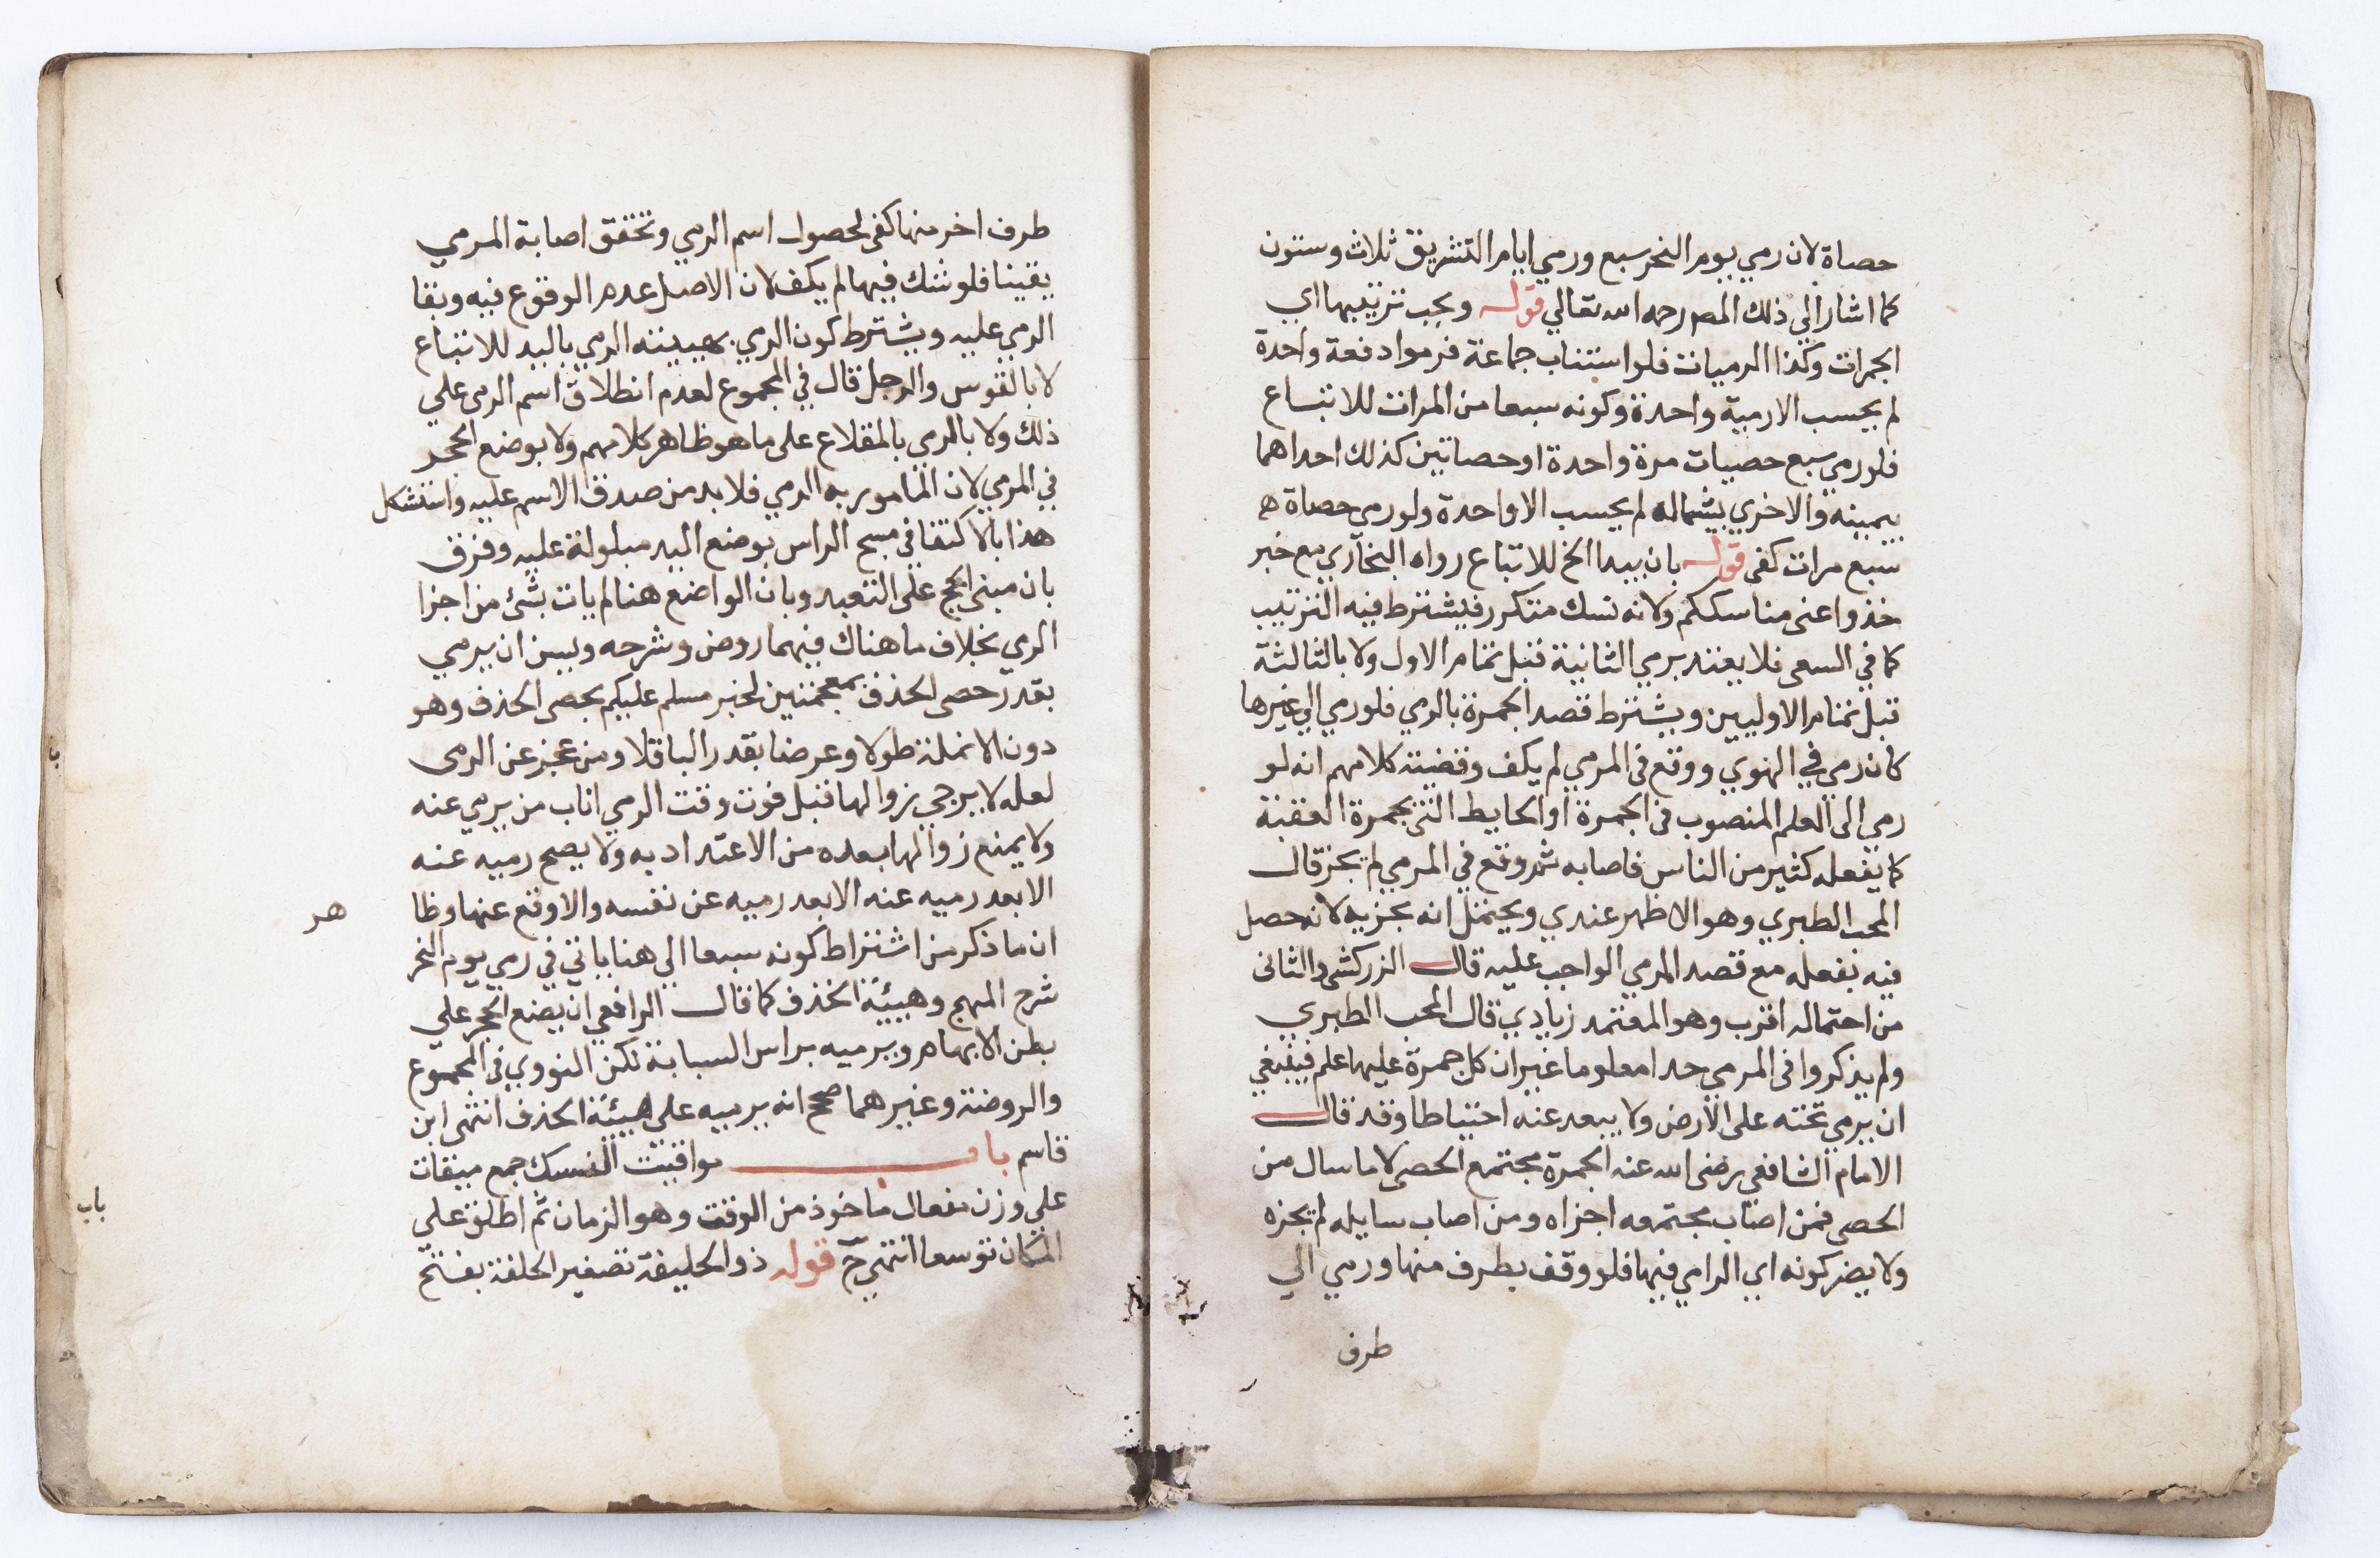 حصاة لان رمي يوم النحر سبع ورمي ايام التشريق ثلاث وستون
كما اشار الي ذلك المص رحمه الله تعالي قوله ويجب ترتيبها اي
الجمرات وكذا الرميات فلو استناب جماعة فرموا دفعة واحدة
لم يحسب الا رمية واحدة وكونه سبعا من المرات للاتباع
فلو رمي سبع حصيات مرة واحدة او حصاتين كذلك احداهما
بيمينه والاخري بشماله لم يحسب الا واحدة ولو رمي حصاة ه
سبع مرات كفي قوله بان يبدا الخ للاتباع رواه البخاري مع خبر
خذوا عني مناسككم ولانه نسك متكرر فيشترط فيه الترتيب
كما في السعي فلا يعتد برمي الثانية قبل تمام الاول ولا بالثالثة
قبل تمام الاوليين ويشترط قصد الجمرة بالرمي فلو رمي الي غيرها
كان رمي في الهوي ووقع في المرمي لم يكف وقضية كلامهم انه لو
رمي الي العلم المنصوب في الجمرة او الحايط التي بجمرة العقبة
كما يفعله كثير من الناس فاصابه ثم وقع في المرمي لم يجز قال
المحب الطبري وهو الاظهر عندي ويحتمل انه يجزيه لانه حصل
فيه بفعله مع قصد المرمي الواجب عليه قال الزركشي والثاني
من احتماله اقرب وهو المعتمد زيادي قال المحب الطبري
ولم يذكروا في المرمي حدا معلوما غير ان كل جمرة عليها علم فينبغي
ان يرمي تحته علي الارض ولا يبعد عنه احتياطا وقد قال
الامام الشافعي رضي الله عنه الجمرة مجتمع الحصي لا ما سال من
الحصي فمن اصاب مجتمعه اجزاه ومن اصاب سايله لم يجزه
ولا يضر كونه اي الرامي فيها فلو وقف بطرف منها ورمي الي
طرف
طرف اخر منها كفي لحصول اسم الرمي وتحقق اصابة المرمي
يقينا فلو شك فيها لم يكف لان الاصل عدم الوقوع فيه وبقا
الرمي عليه ويشترط كون الرمي بهيئته الرمي باليد للاتباع
لا بالقوس والرجل قال في المجموع لعدم انطلاق اسم الرمي علي
ذلك ولا بالرمي بالمقلاع علي ما هو ظاهر كلامهم ولا بوضع الحجر
في المرمي لان المامور به الرمي فلا بد من صدق الاسم عليه واستشكل
هذا بالاكتفا في مسح الراس بوضع اليد مبلولة عليه وفرق
بان مبني الحج علي التعبد وبان الواضع هنا لم يات بشئ من اجزا
الرمي بخلاف ما هناك فيهما روض وشرحه ويسن ان يرمي
بقدر حصي الخذف بمعجمتين لخبر مسلم عليكم بحصي الخذف وهو
دون الانملة طولا وعرضا بقدر الباقلا ومن عجز عن الرمي
لعله لا يرجي زوالها قبل فوت وقت الرمي اناب من يرمي عنه
ولا يمنع زوالها بعده من الاعتداد به ولا يصح رميه عنه
الا بعد رميه عنه الا بعد رميه عن نفسه والا وقع عنها وظا
هر
ان ما ذكر من اشتراط كونه سبعا الي هنا ياتي في رمي يوم النحر
شرح المنهج وهيئة الخذف كما قال الرافعي ان يضع الحجر علي
بطن الابهام ويرميه براس السبابة لكن النووي في المجموع
والروضة وغيرهما صحح انه يرميه علي هيئة الخذف انتهي ابن
قاسم باب مواقيت النسك جمع ميقات
علي وزن مفعال ماخوذ من الوقت وهو الزمان ثم اطلق علي
المكان توسعا انتهي ح قوله ذو الحليفة تصغير الحلفة بفتح
باب